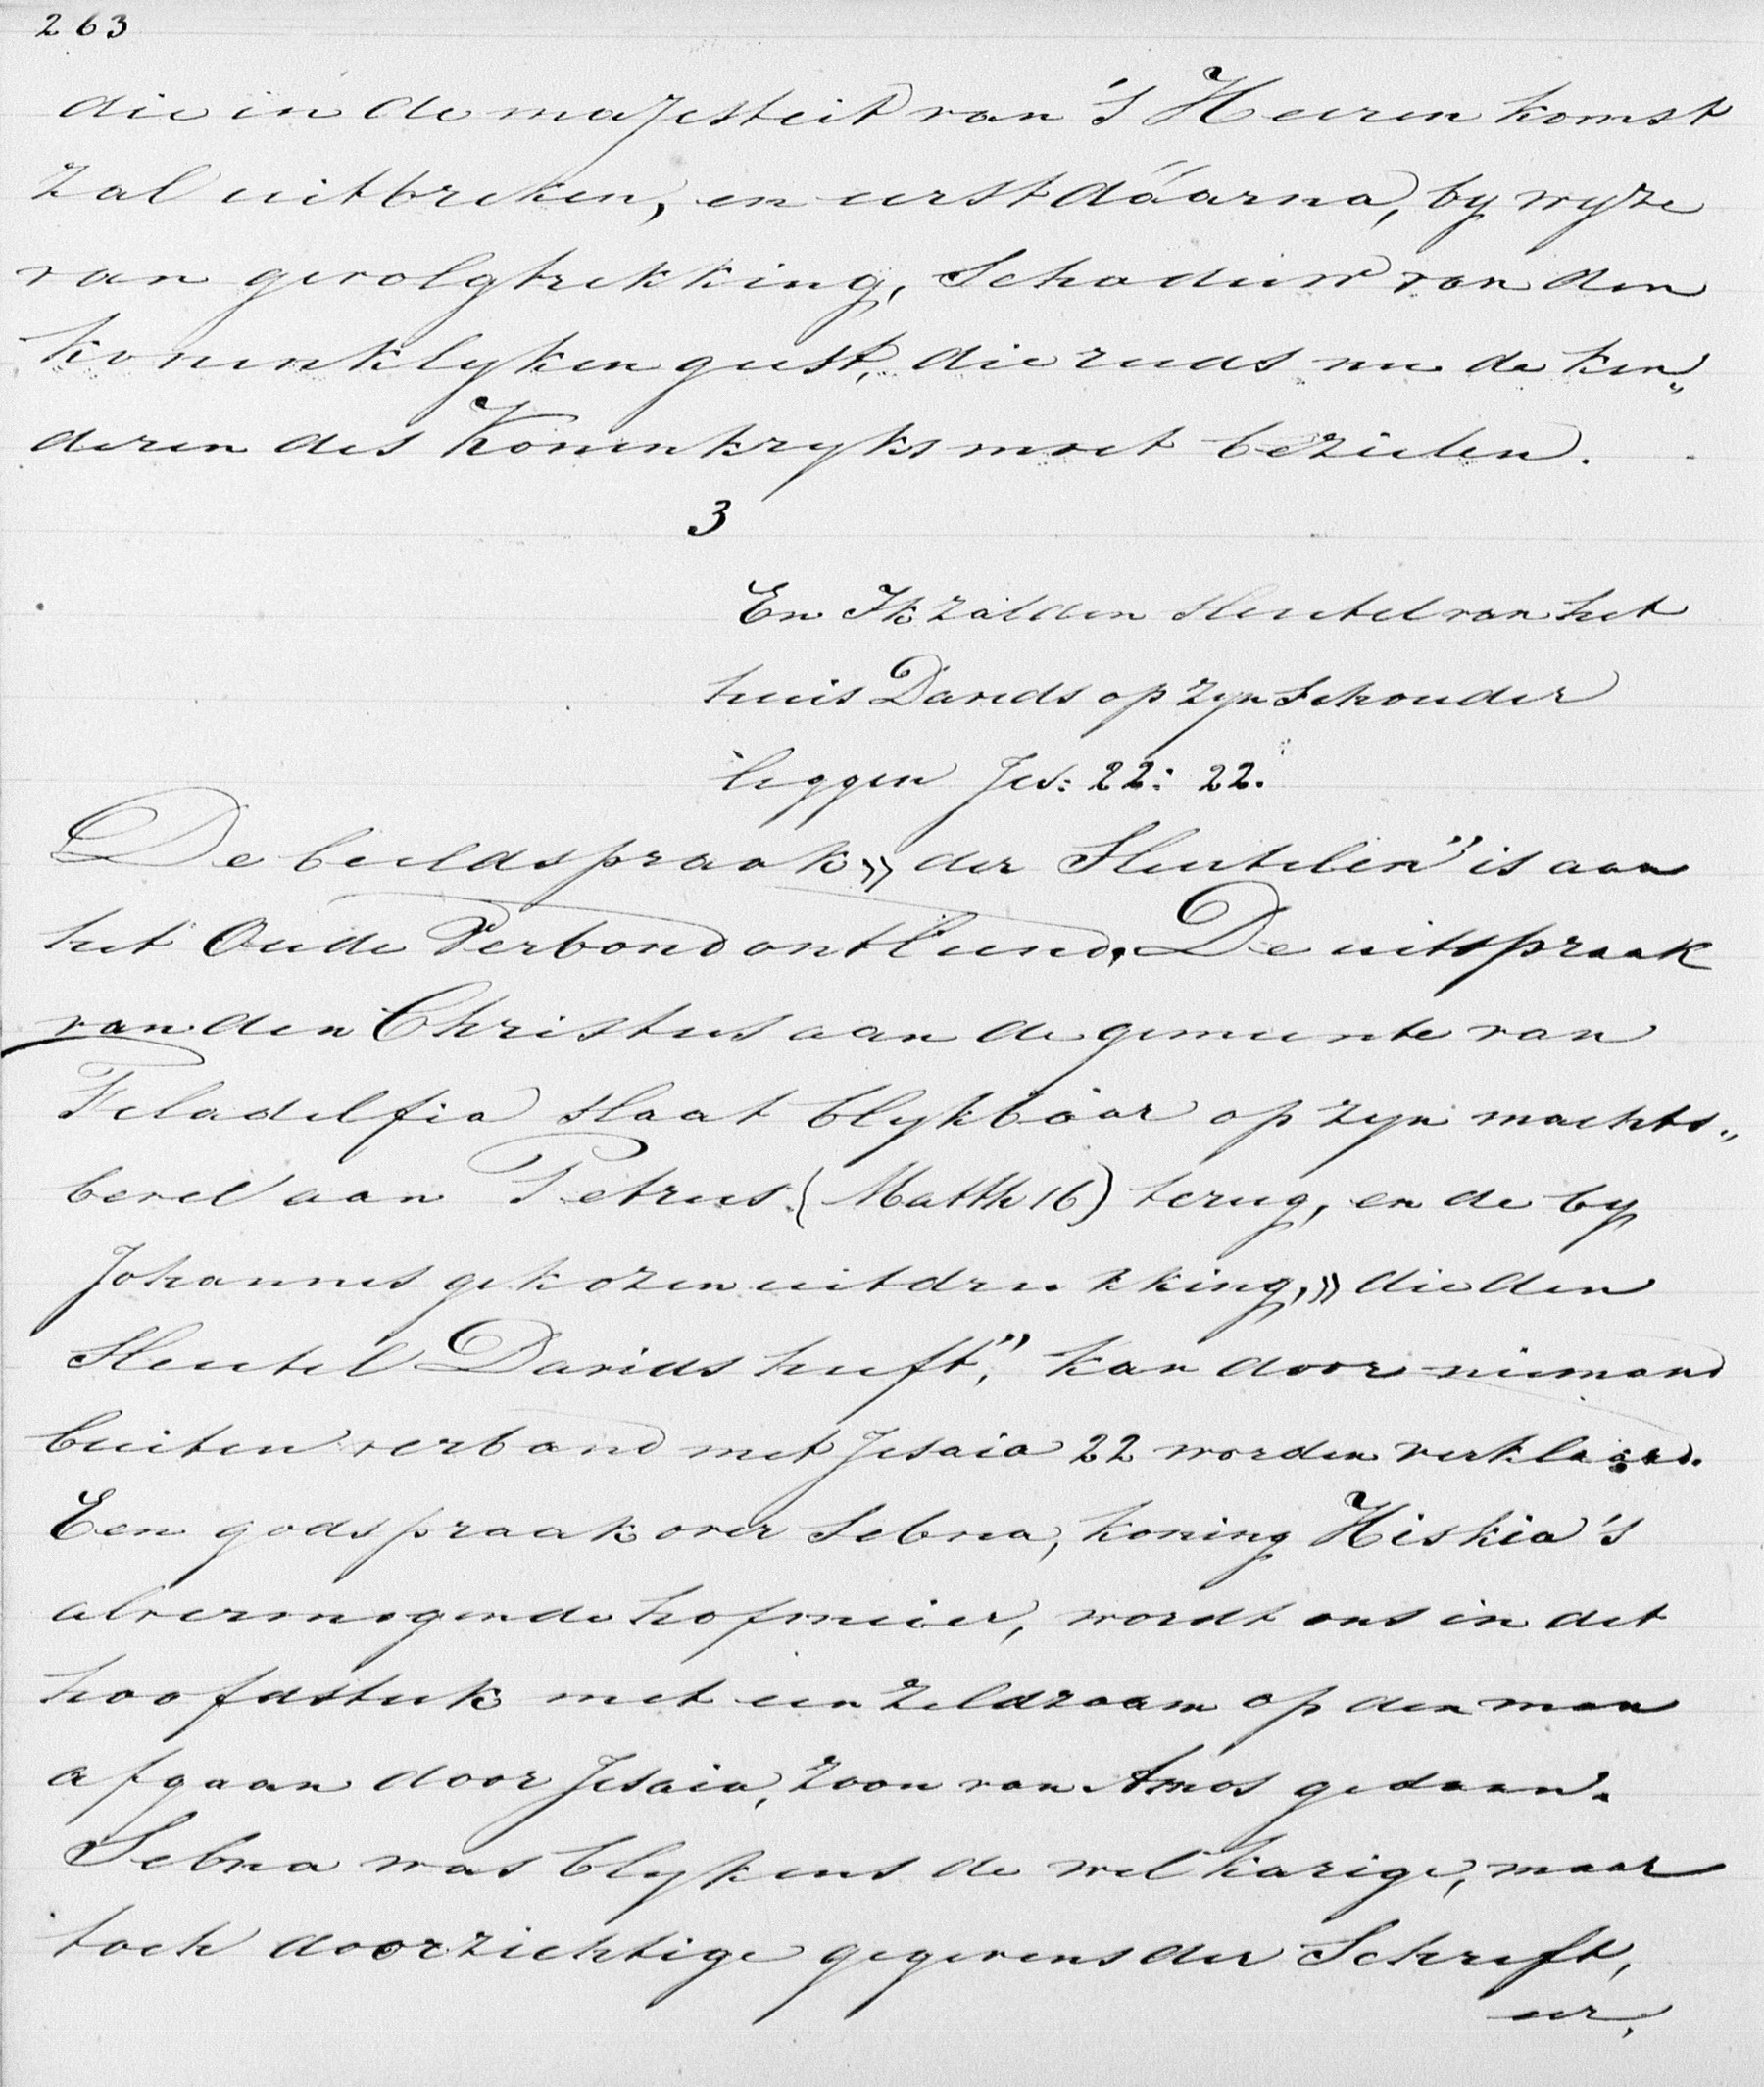 263
die in de majesteit van 's Heeren komst
zal uitbreken, en eerst dáarna, by wyze
van gevolgtrekking, schaduw van den
koninklyken geest, die reeds nu de kin„
deren des Koninkryks moet bezielen.
3
En Ik zal den sleutel van het
huis Davids op zyn schouder
leggen Jes: 22: 22.
De beeldspraak „der Sleutelen" is aan
het Oude Verbond ontleend. De uitspraak
van den Christus aan de gemeente van
Filadelfia slaat blykbaar op zyn machts„
bevel aan Petrus (Matth 16) terug, en de by
Johannes gekozen uitdrukking, „die den
Sleutel Davids heeft", kan door niemand
buiten verband met Jesaia 22 worden verklaard.
Een godspraak over Sebna, koning Hiskia's
alvermogende hofmeier, wordt ons in dit
hoofdstuk met een zeldzaam op den man
afgaan door Jesaia, zoon van Amos gedaan.
Sebna was blykens de wel karige, maar
toch doorzichtige gegevens der Schrift,
eer,